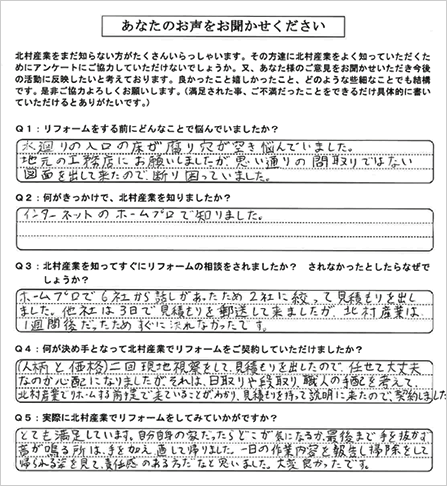 あなたのお声をお聞かせください
北村産業をまだ知らない方がたくさんいらっしゃいます。その方達に北村産業をよく知っていただくた
めにアンケートにご協力していただけないでしょうか。又、あなた様のご意見をお聞かせいただき今後
の活動に反映したいと考えております。良かったこと嬉しかったこと、どのような些細なことでも結構
です。是非ご協力よろしくお願いします。（満足された事、ご不満だったことをできるだけ具体的に書い
ていただけるとありがたいです。）
Q1：リフォームをする前にどんなことで悩んでいましたか？
水廻りの入口の床が腐り穴が空き悩んでいました。
地元の工務店にお願いしましたが思い通りの間取りではない
図面を出して来たので断り困っていました。
Q2：何がきっかけで、北村産業を知りましたか？
インターネットのホームプロで知りました。
Q3：北村産業を知ってすぐにリフォームの相談をされましたか？　されなかったとしたらなぜで
しょうか？
ホームプロで6社から話しがあったため2社に絞って見積もりを出し
ました。他社は3日で見積もりを郵送して来ましたが、北村産業は
1週間後だったためすぐに決れなかったです。
Q4：何が決め手となって北村産業でリフォームをご契約していただけましたか？
(人柄と価格)二回現地視察をして見積もりを出したので、任せて大丈夫
なのか心配になりましたがそれは、日取りや段取り、職人の手配を考えて、
北村産業でリホームする前提で来ていることがわかり、見積もりを持って説明に来たので、契約しました
Q5：実際に北村産業でリフォームをしてみていかがですか？
とても満足しています。自分自身の家だったらどこが気になるか、最後まで手を抜かず
音が鳴る所は、手を加え、直して帰りました。一日の作業内容を報告し掃除をして
帰られる姿を見て、責任感のある方だなと思いました。大変良かったです。